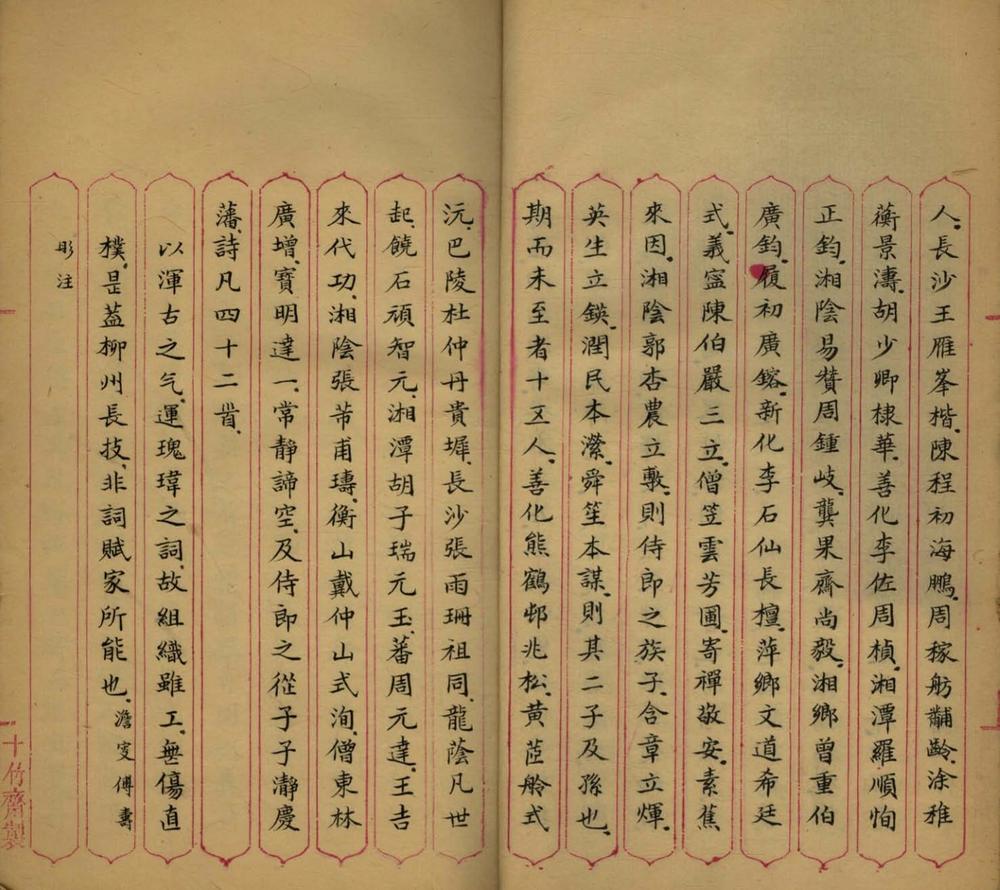 人長沙王雁峯楷陳程初海鵬周稼舫黼齡涂稚
蘅景濤胡少卿棣華善化李佐周楨湘潭羅順恂
正鈞湘陰易贊周鍾岐龔果齋尚毅湘鄉曾重伯
廣鈞履初廣鎔新化李石仙長檀萍鄉文道希廷
式義寧陳伯嚴三立僧笠雲芳圃寄禪敬安素蕉
來因湘陰郭杏農立敷則侍郎之族子含章立煇
英生立鍈潤民本瀠舜笙本謀則其二子及孫也
期而未至者十五人善化熊鶴邨兆松黃蓲舲式
沅巴陵杜仲丹貴墀長沙張雨珊祖同龍蔭凡世
起饒石頑智元湘潭胡子瑞元玉蕃周元達王吉
來代功湘陰張芾甫璹衡山戴仲山式洵僧東林
廣增寶明達一常靜諦空及侍郎之從子子瀞慶
藩詩凡四十二首
以渾古之气運瑰瑋之詞故組織雖工無傷直
樸是葢柳州長技非詞賦家所能也澹叟傅壽
彤注
十竹齋製